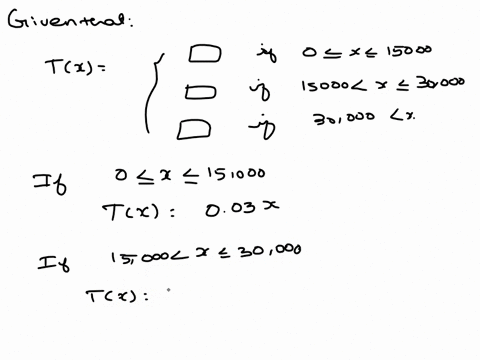 Given that:
T(x) =
□ if 0 ≤ x ≤ 15000
□ if 15000 < x ≤ 30,000
□ if 30,000 < x.
If 0 ≤ x ≤ 15,000
T(x) : 0.03 x
If 15,000 < x ≤ 30,000
T(x) :